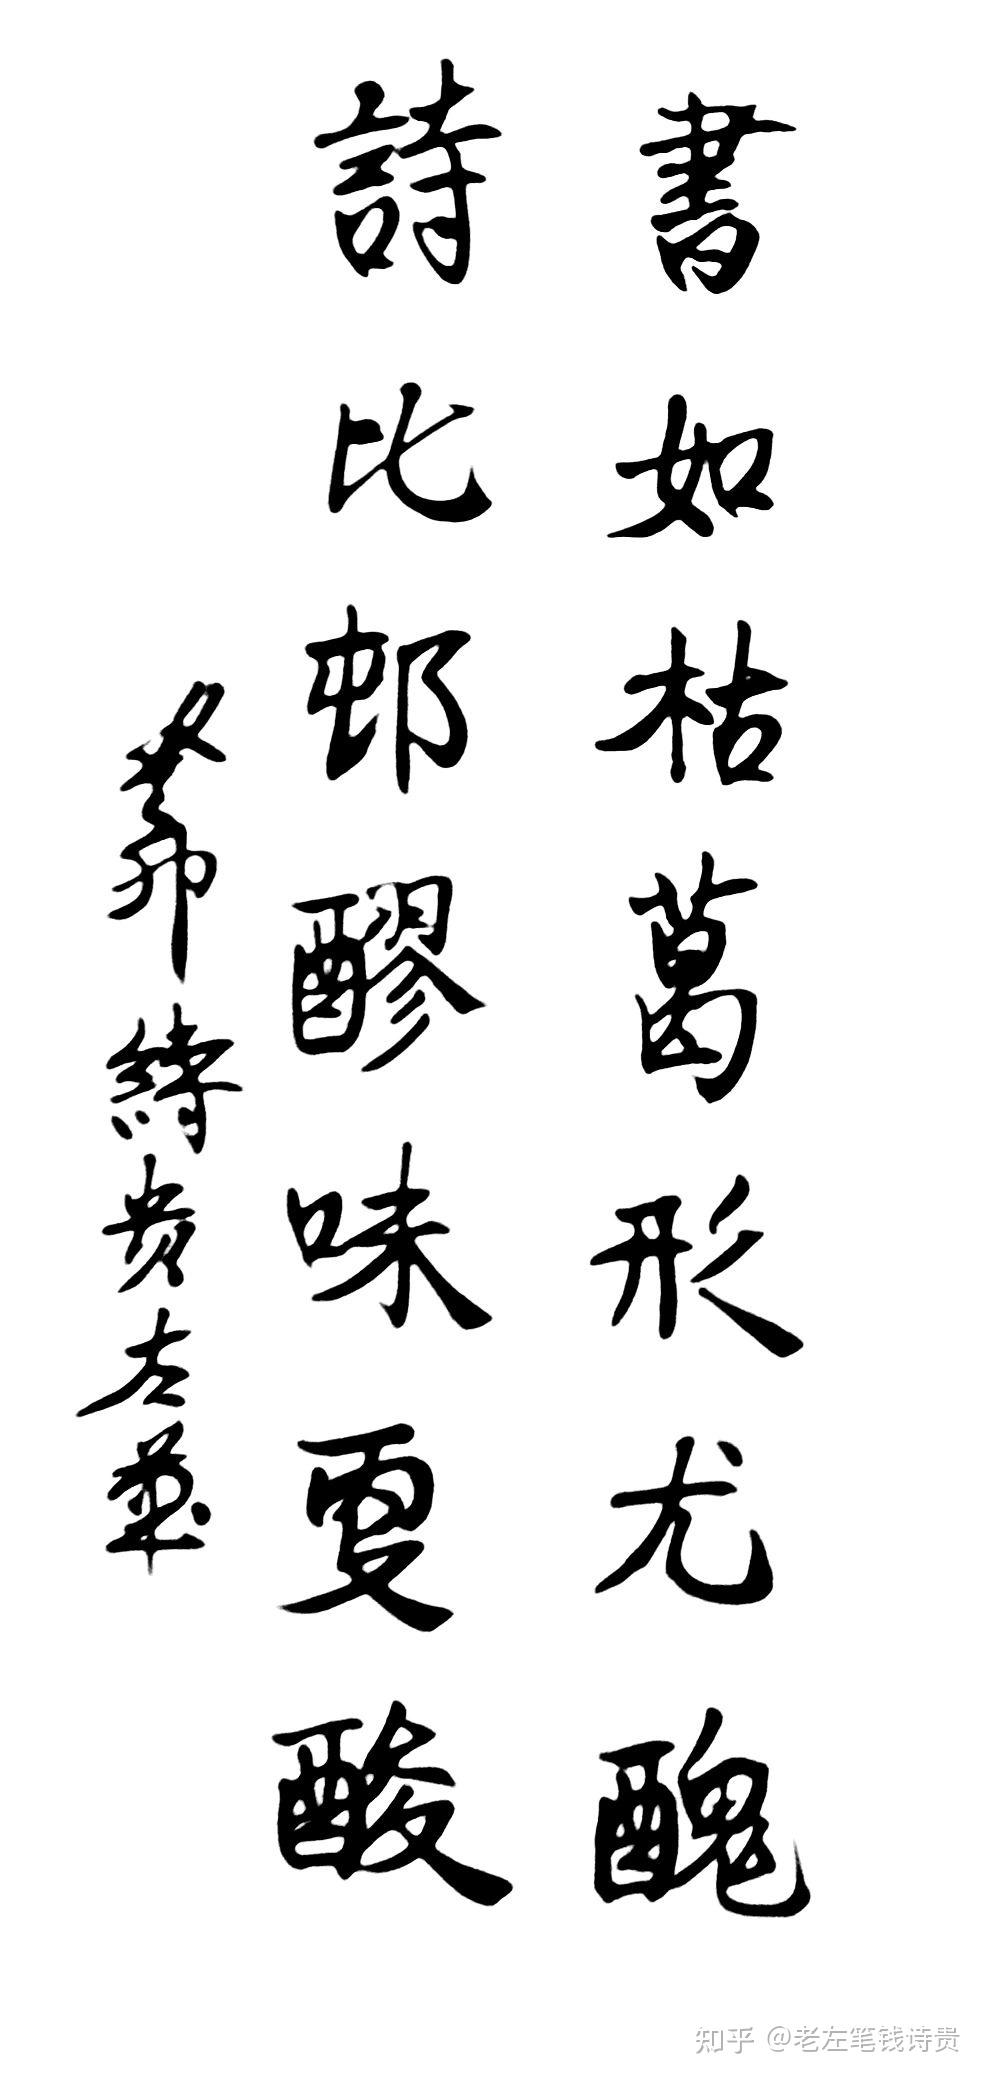 書如枯葛形尤醜
詩比邨醪味更酸
癸卯 詩贵左並
知乎 @老左笔钱诗贵